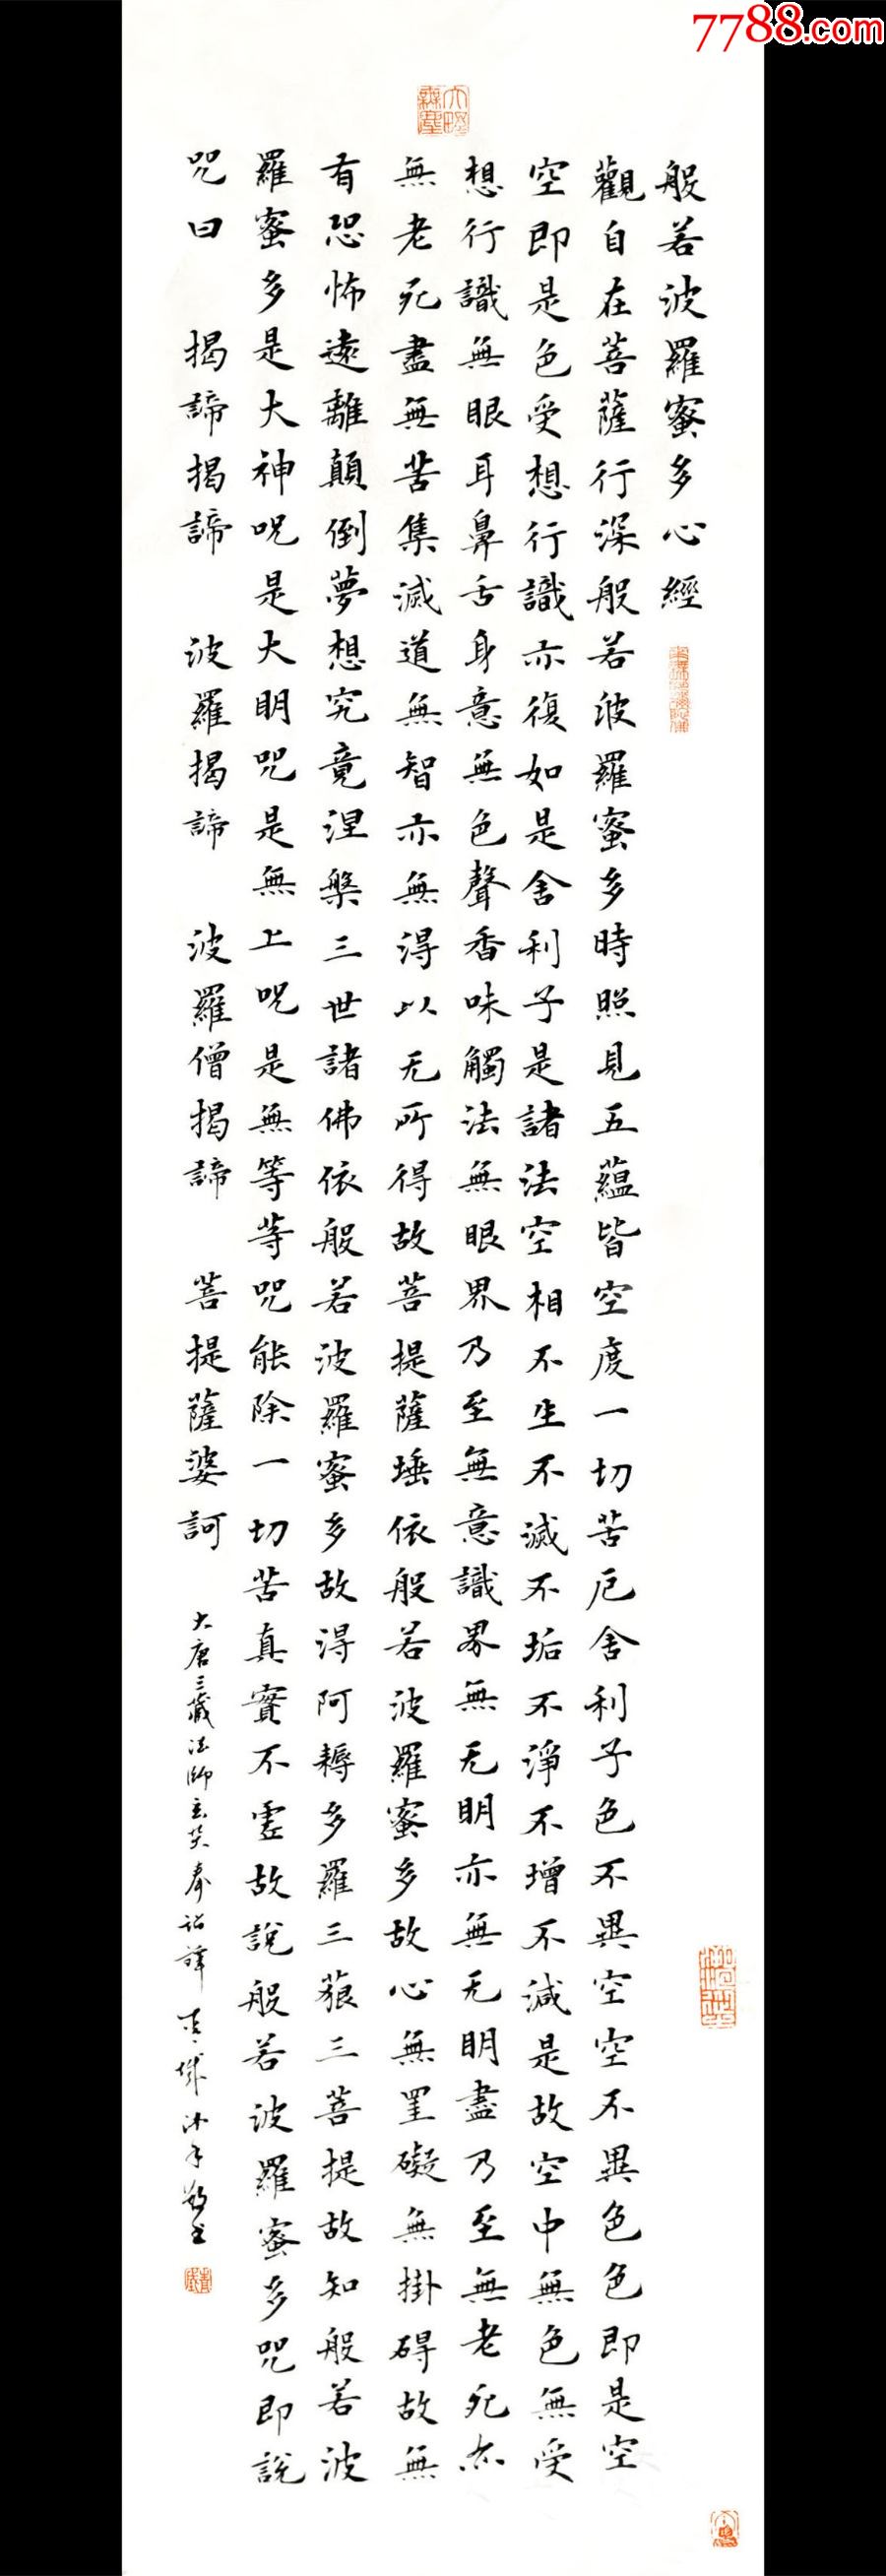 7788.com
般若波羅蜜多心經
觀自在菩薩行深般若波羅蜜多時照見五蘊皆空度一切苦厄舍利子色不異空空不異色色即是空
空即是色受想行識亦復如是舍利子是諸法空相不生不滅不垢不淨不增不減是故空中無色無受
想行識無眼耳鼻舌身意無色聲香味觸法無眼界乃至無意識界無无明亦無无明盡乃至無老死亦
無老死盡無苦集滅道無智亦無得以无所得故菩提薩埵依般若波羅蜜多故心無罣礙無掛碍故無
有恐怖遠離顛倒夢想究竟涅槃三世諸佛依般若波羅蜜多故得阿耨多羅三藐三菩提故知般若波
羅蜜多是大神咒是大明咒是無上咒是無等等咒能除一切苦真實不虛故說般若波羅蜜多咒即說
咒曰 揭諦揭諦 波羅揭諦 波羅僧揭諦 菩提薩婆訶
大唐三藏法師玄奘奉詔譯 沐手敬書